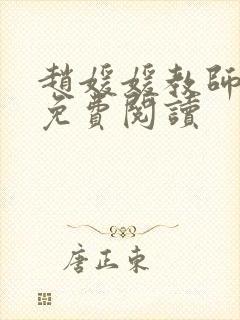 趙媛媛教師
免費閱讀
唐正東